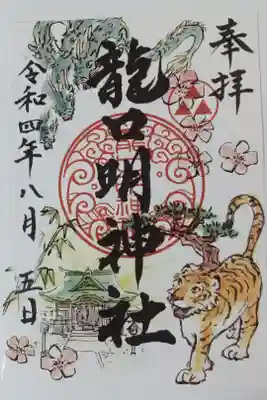 奉拝
龍口明神社
令和四年八月五日